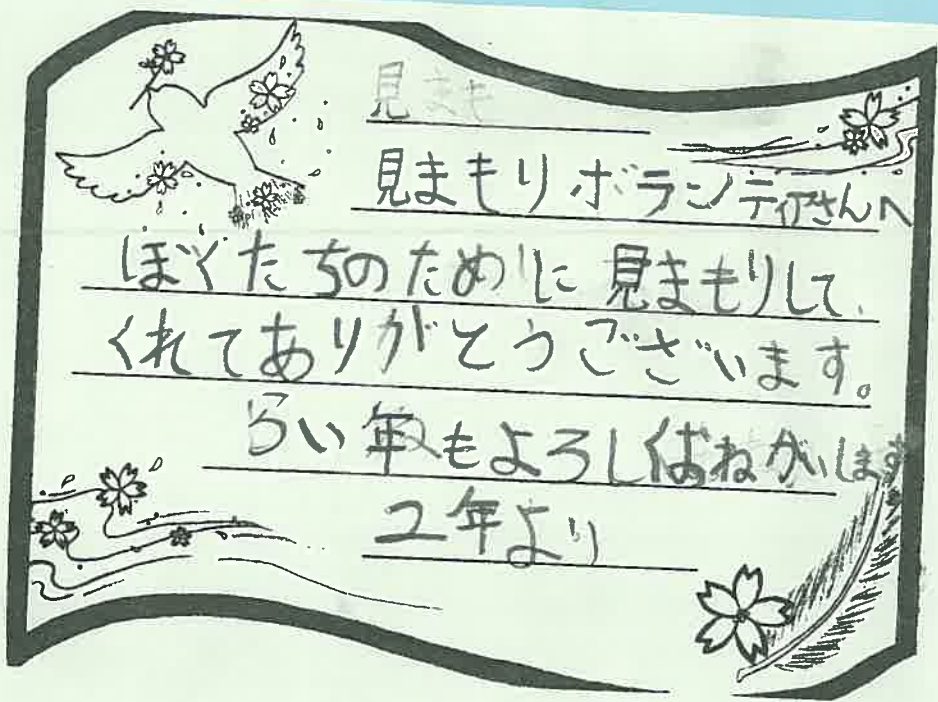 見まも
見まもりボランティアさんへ
ぼくたちのために見まもりして、
くれてありがとうございます。
らい年もよろしくおねがいします
2年より